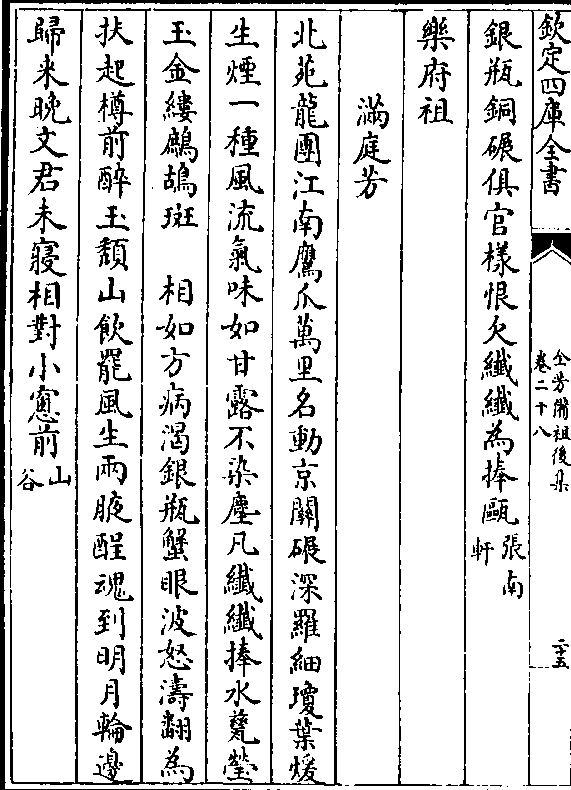 欽定四庫全書
全芳備祖後集
卷二十八
二十五
銀瓶銅碾俱官樣恨欠纖纖為捧甌張南軒
樂府祖
滿庭芳
北苑龍團江南鷹爪萬里名動京關碾深羅細瓊蕋煖
生煙一種風流氣味如甘露不染塵凡纖纖捧水甆瑩
玉金縷鷓鴣斑 相如方病渴銀瓶蟹眼波怒濤翻為
扶起樽前醉玉頹山飲罷風生兩腋醒魂到明月輪邊
歸来晚文君未寢相對小窻前山谷